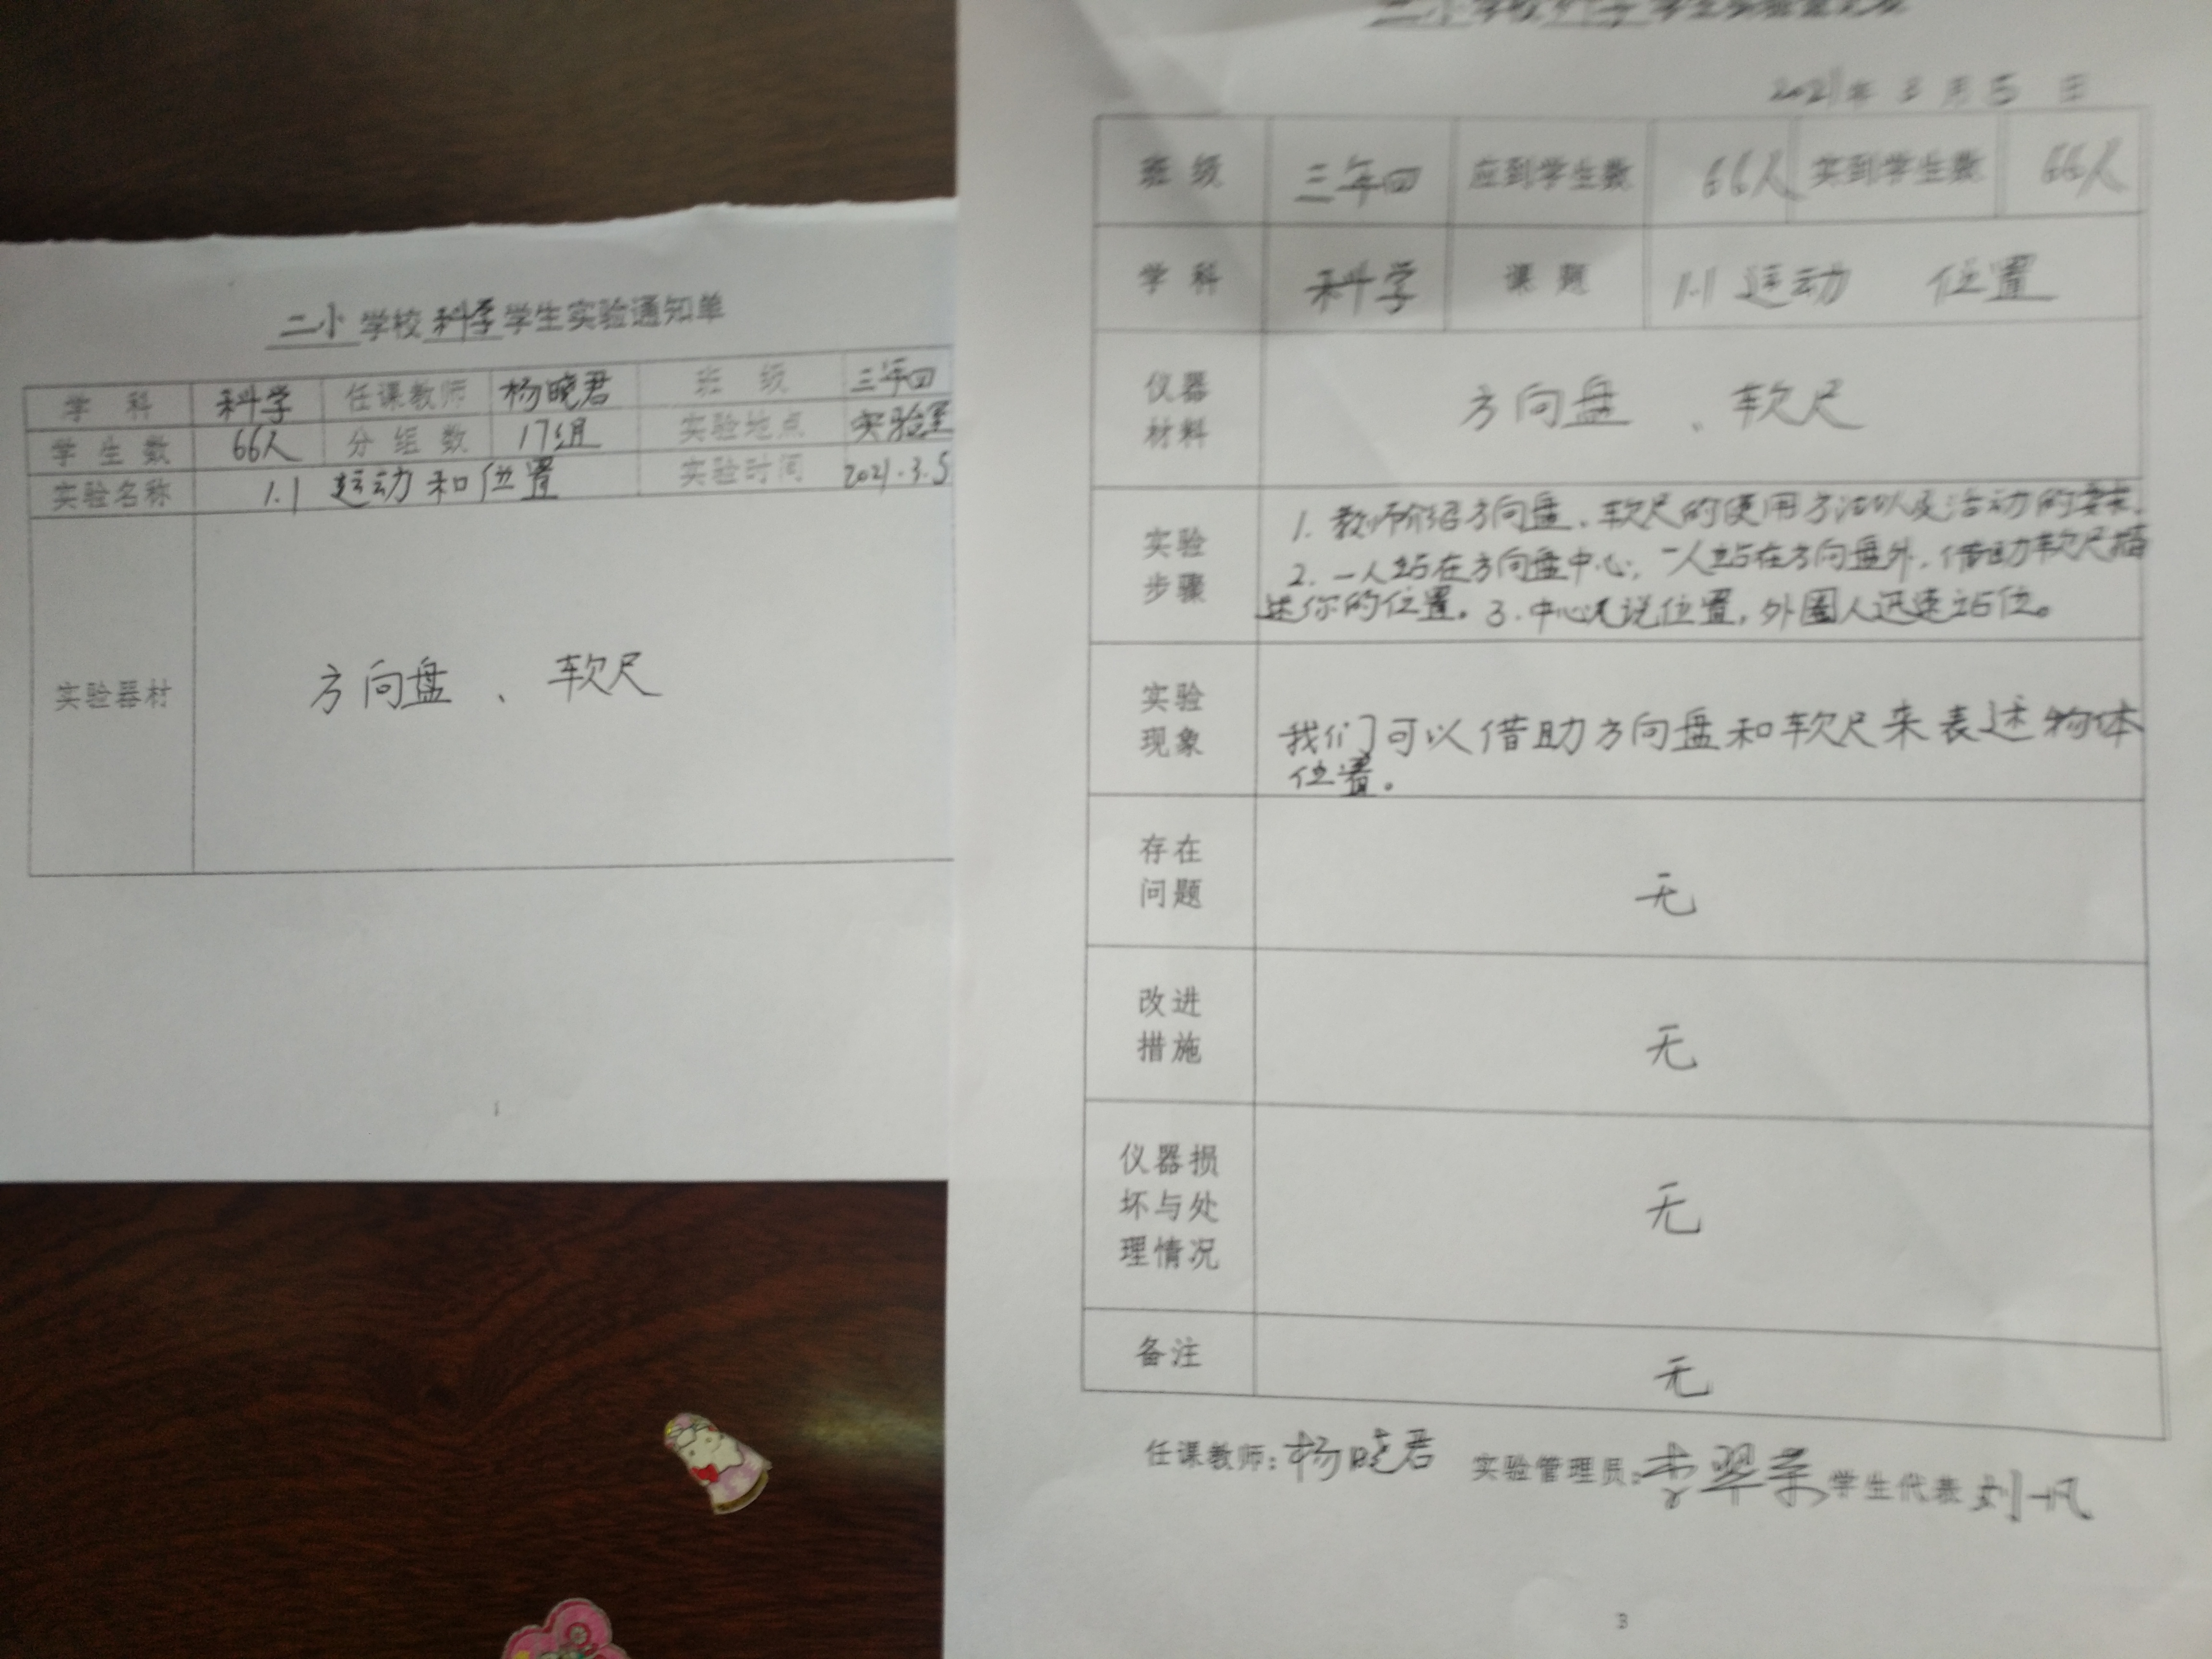 二小学校科学学生实验通知单
学科 科学 任课教师 杨晓君 班级 三年四
学生数 66人 分组数 17组 实验地点 实验室
实验名称 1.1 运动和位置 实验时间 2021.3.5
实验器材 方向盘、软尺
1
2021年3月5日
班级 三年四 应到学生数 66人 实到学生数 66人
学科 科学 课题 1.1 运动 位置
仪器
材料
方向盘、软尺
实验
步骤
1. 教师介绍方向盘、软尺的使用方法以及活动的要求.
2. 一人站在方向盘中心,一人站在方向盘外,借助软尺描
述你的位置。3.中心人说位置,外圈人迅速站位。
实验
现象
我们可以借助方向盘和软尺来表述物体
位置。
存在
问题
无
改进
措施
无
仪器损
坏与处
理情况
无
备注
无
任课教师:杨晓君 实验管理员: 学生代表 刘一凡
3